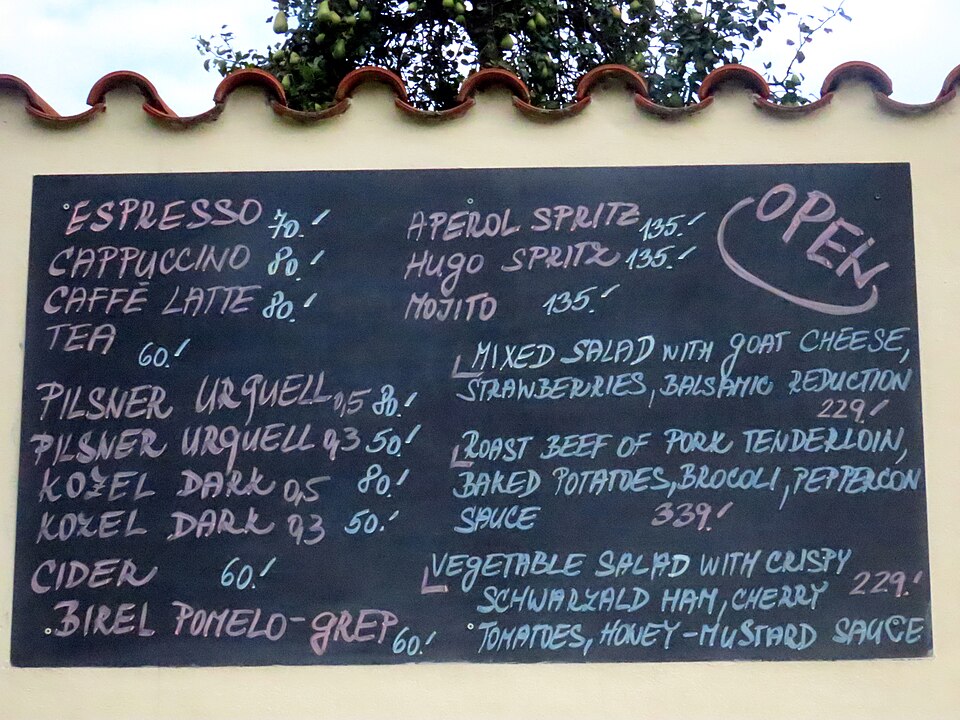 ESPRESSO 70.'
CAPPUCCINO 80.'
CAFFÈ LATTE 80.'
TEA 60.'
PILSNER URQUELL 0,5 80.'
PILSNER URQUELL 0,3 50.'
KOZEL DARK 0,5 80.'
KOZEL DARK 0,3 50.'
CIDER 60.'
BIREL POMELO-GREP 60.'
APEROL SPRITZ 135.'
HUGO SPRITZ 135.'
MOJITO 135.'
OPEN
MIXED SALAD WITH GOAT CHEESE,
STRAWBERRIES, BALSAMIC REDUCTION
229.'
ROAST BEEF OF PORK TENDERLOIN,
BAKED POTATOES, BROCOLI, PEPPERCON
SAUCE 339.'
VEGETABLE SALAD WITH CRISPY
SCHWARZALD HAM, CHERRY 229.'
TOMATOES, HONEY-MUSTARD SAUCE